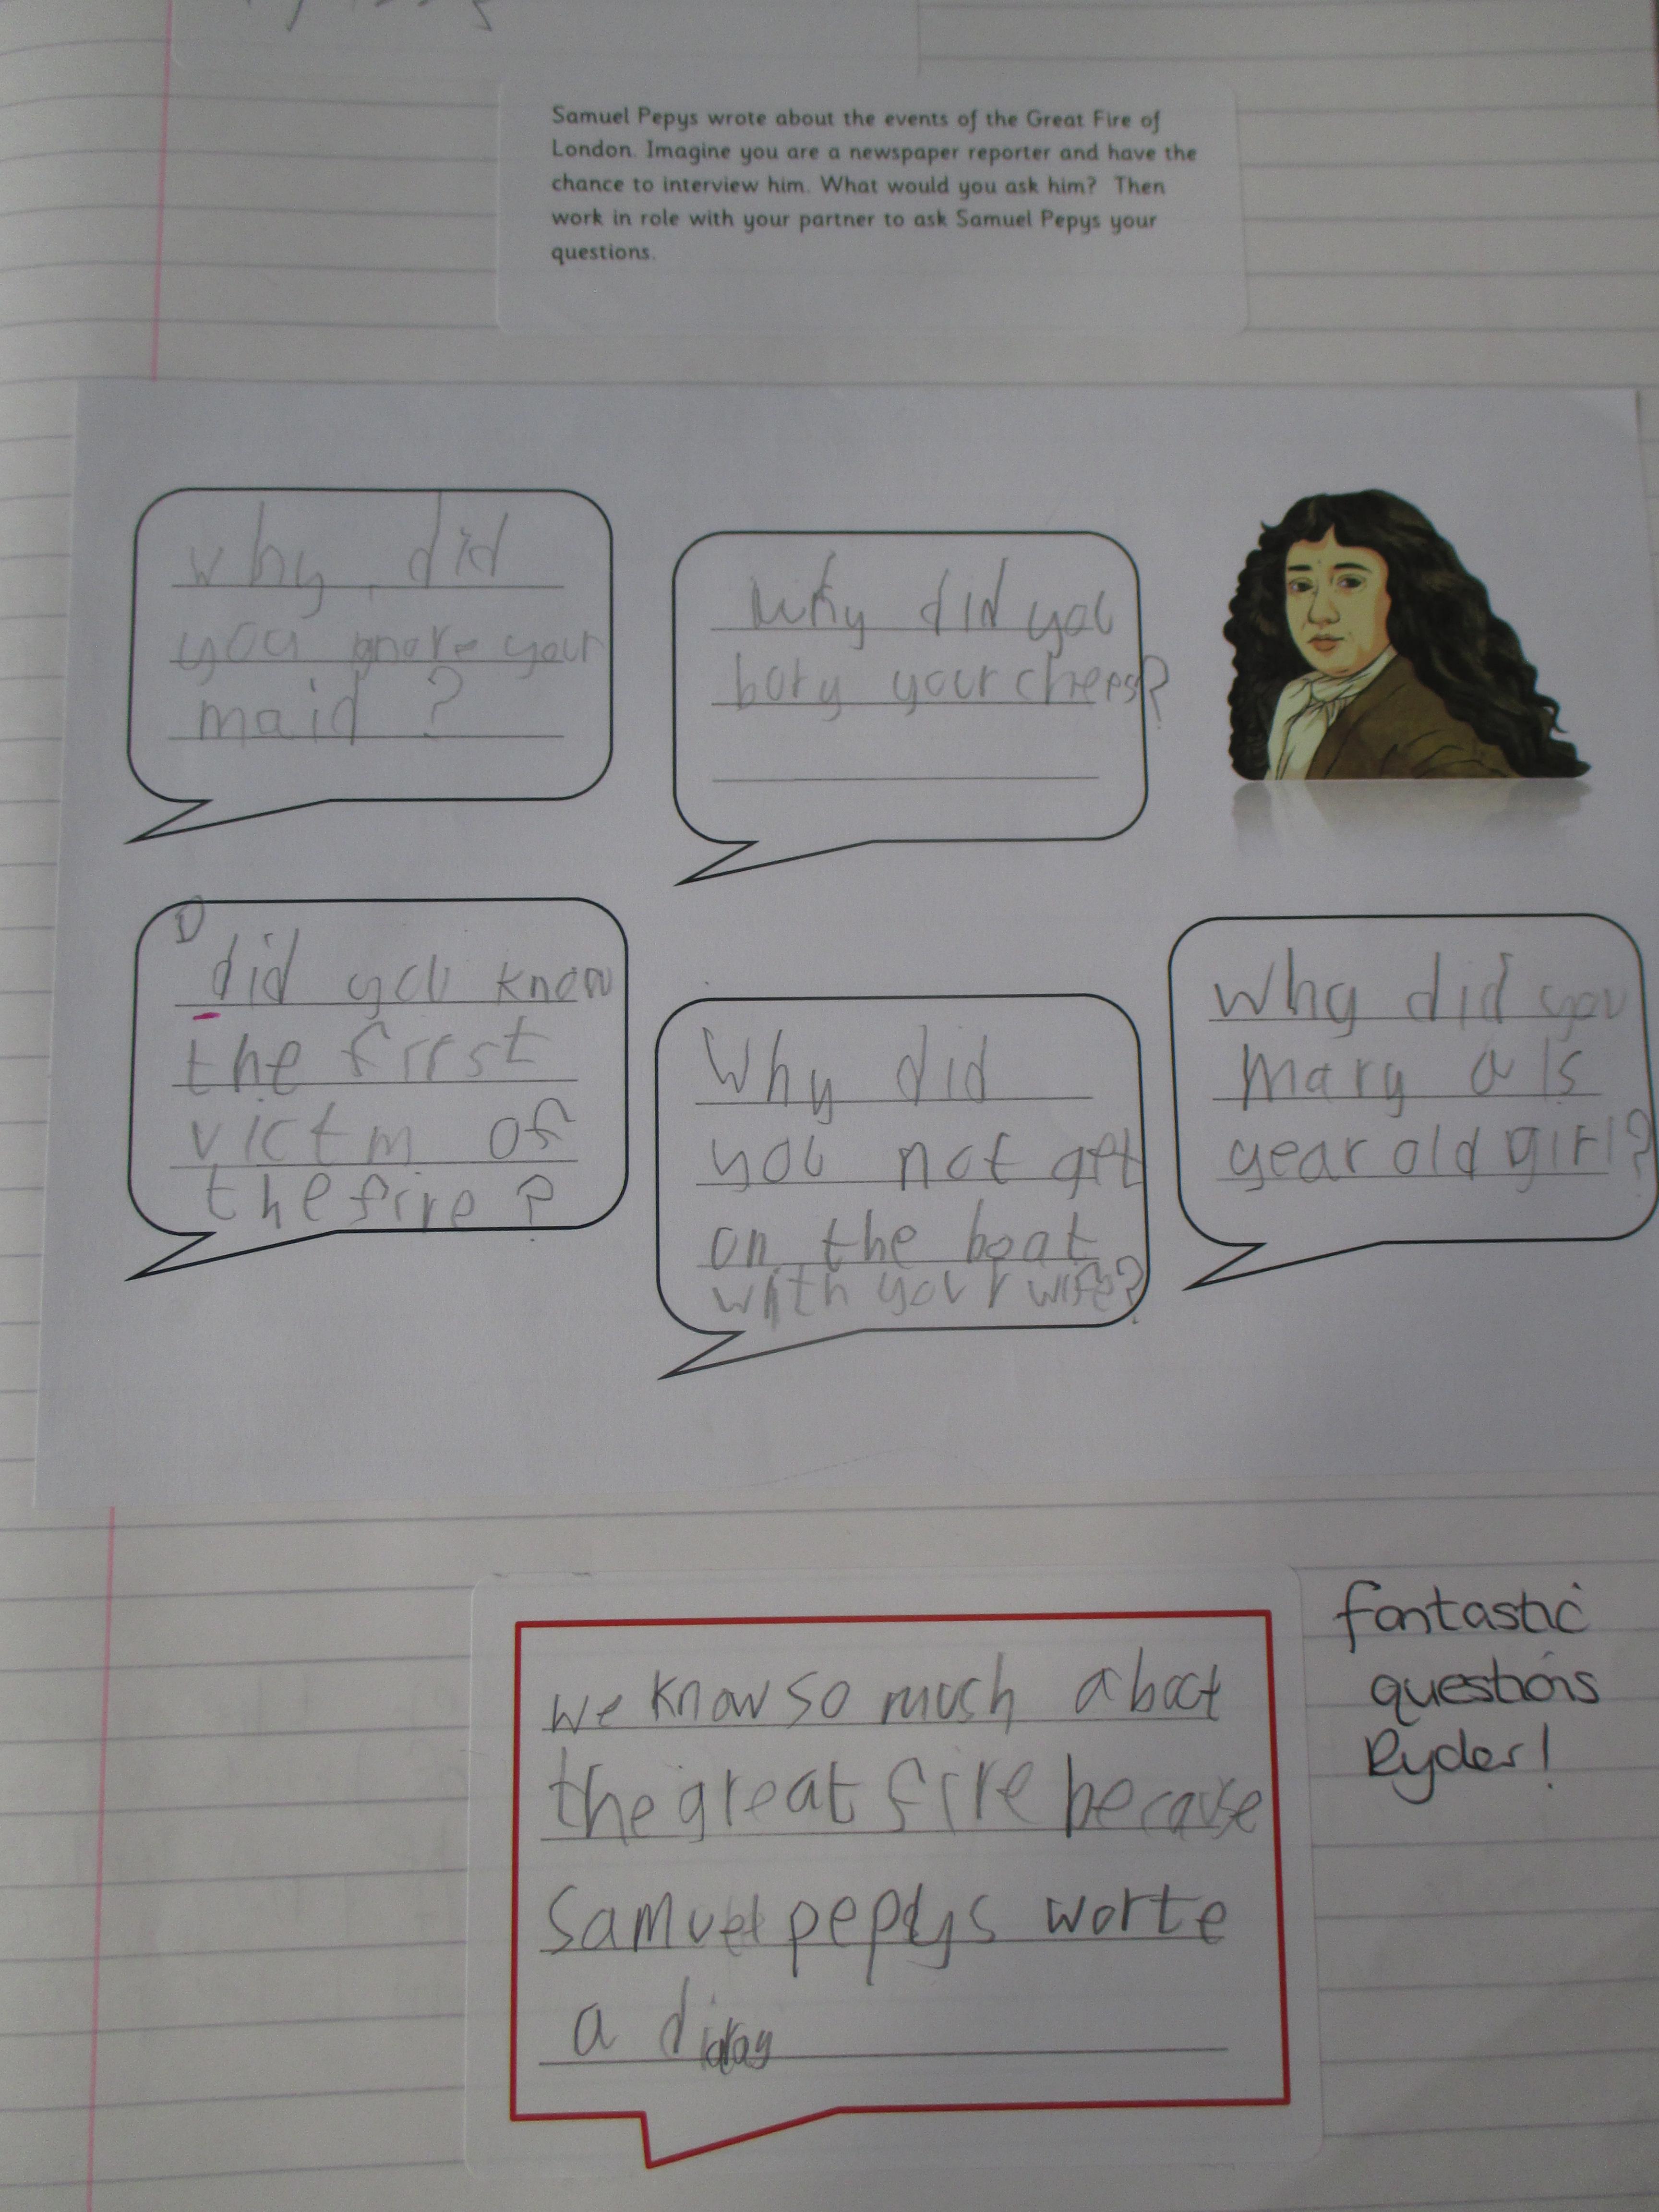 Samuel Pepys wrote about the events of the Great Fire of
London. Imagine you are a newspaper reporter and have the
chance to interview him. What would you ask him? Then
work in role with your partner to ask Samuel Pepys your
questions.
why did
you gnore your
maid ?
Why did you
bury your chees?
D
did you know
the first
victm of
the fire ?
Why did
you not get
on the boat
with your wife?
Why did you
mary a 15
year old girl?
we know so much about
the great fire because
Samuel pepys worte
a
fantastic
questions
Ryder!